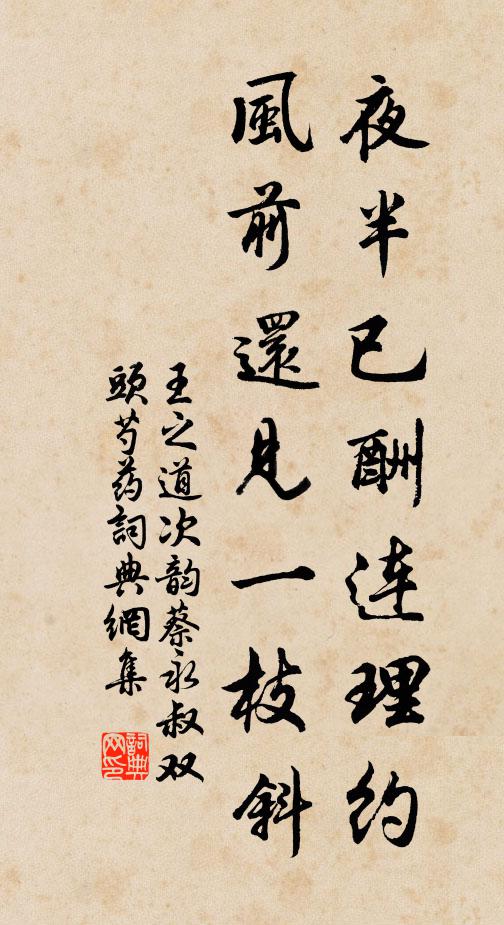 夜半已酬连理约
風前還見一枝斜
王之道次韵蔡永叔双
頭芍药詞典網集
詞典网印